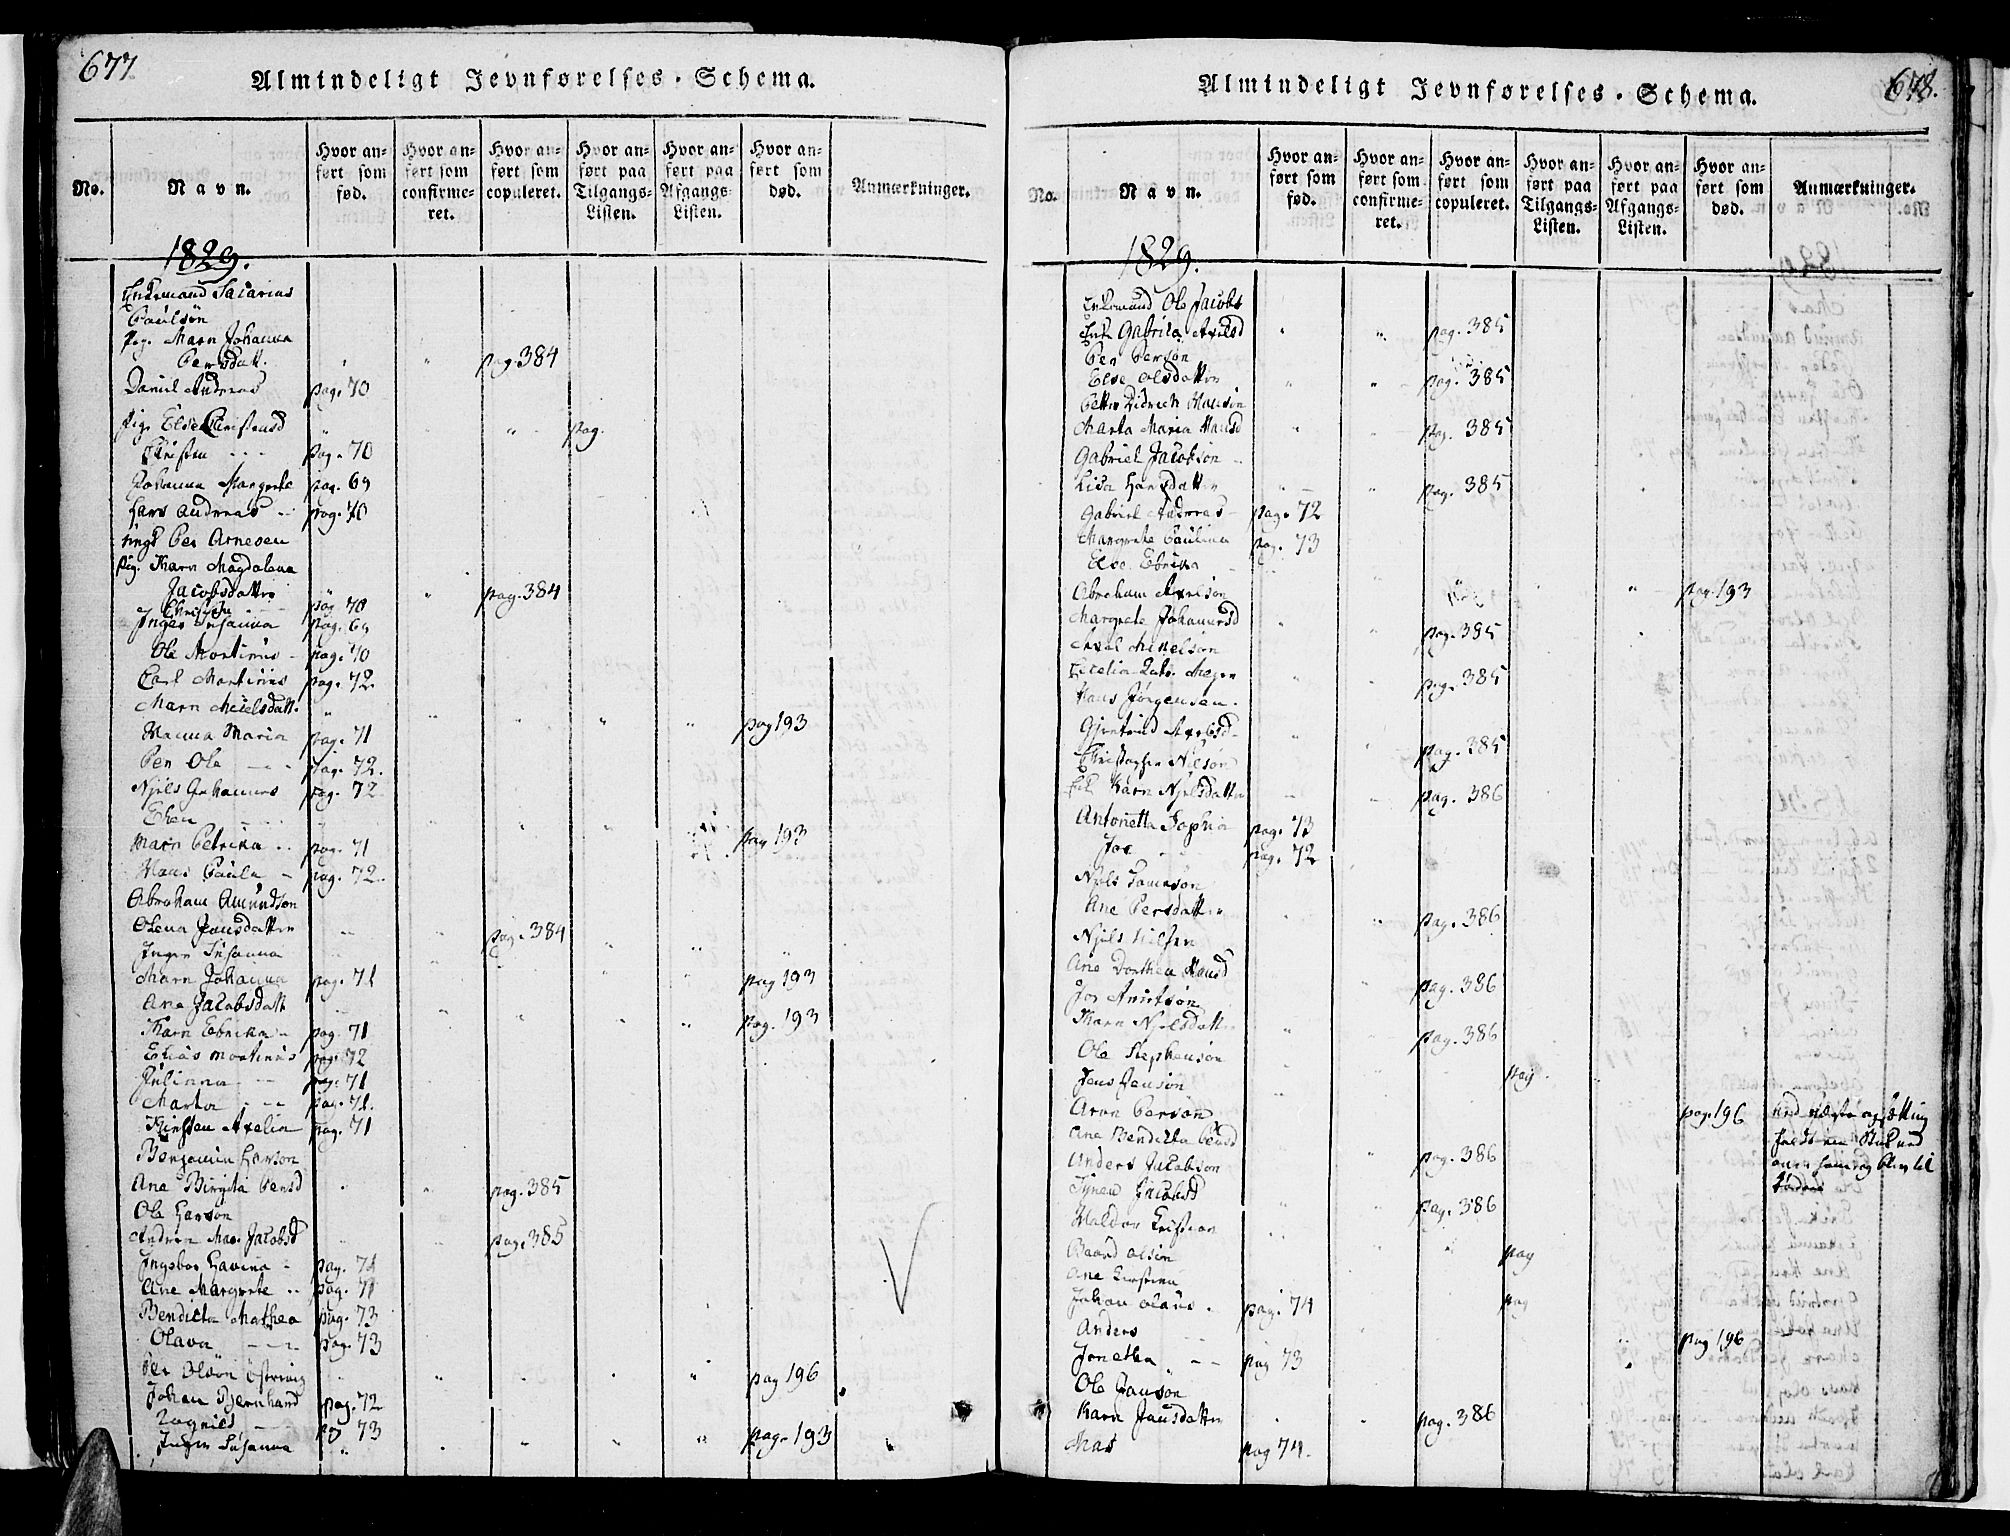 677
Almindeligt Jevnførelses-Schema.
No.
Navn.
Hvor an-
ført som
fød.
Hvor an-
ført som
confirme-
ret.
Hvor an-
ført som
copuleret.
Hvor an-
ført paa
Tilgangs-
Listen.
Hvor an-
ført paa
Afgangs-
Listen.
Hvor an-
ført som
død.
Anmærkninger.
1829.
Enkemand Sacarias
Paulsøn
Pig. Marn Johanna
Persdatt. " " pag 384
Daniel Andreas pag. 70
pige Else Christensd " " pag.
Christen - - - pag. 70
Johanna Margrete pag. 69
Hans Andreas - pag. 70
Ungk Per Arnesen
Pig. Karn Magdalena
Jacobsdatter " " pag. 384
pag 70
Inger Susanna pag. 69
Ole Mortinus - pag. 70
Carl Martinus pag. 72
Marn Nielsdatt. " " " " " pag 193
Hanna Maria pag. 71
Per Ole - - - pag. 72.
Njels Johannes pag. 72
pag 193
Marn Petrika . . pag. 71
Hans Paulu - pag. 72.
Abraham Amundsøn
Olena Jansdatter " " pag. 384
Inger Susanna
Marn Johanna pag. 71 pag 193
Ane Jacobsdatt pag. 193
Karn Ebrika - pag. 71
Elias Martinus pag. 72
Julianna - - pag. 71
Marta - - - pag. 71.
Kirsten Axelin pag. 71
Benjamin Larson
Ane Birgita Persd " " pag. 385
Ole Larson
Andrea Mar. Jacobsd pag. 385
Ingebor Lavina - pag. 71
Ane Margrete . . pag. 71
Bendicta Mathea pag. 73
Olava - - - pag. 73
Per Olsøn " " " " pag 196
Johan Bernhard pag. 72
Ragnild - - 73
Inger Susanna " " " " " pag. 193
678.
Almindeligt Jevnførelses-Schema.
No.
Navn.
Hvor an-
ført som
fød.
Hvor an-
ført som
confirme-
ret.
Hvor an-
ført som
copuleret.
Hvor an-
ført paa
Tilgangs-
Listen.
Hvor an-
ført paa
Afgangs-
Listen.
Hvor an-
ført som
død.
Anmærkninger.
1829.
Enkemand Ole Jacobs
Enk Gabrila Axelsd " " pag. 385
Per Persøn
Else Olsdatter " " pag. 385
Petter Didrich Hansøn
Marta Maria Hansd " " pag. 385
Gabriel Jacobsøn
Lisa Hansdatter " " pag. 385
Gabriel Andreas - pag. 72
Margrete Paulina pag. 73
Else Ebrika
Abraham Axelsøn " " pag. 193
Margrete Johannesd " " pag. 385
Axel Mikelsøn
Cecelia Meyer " " pag. 385
Hans Jørgensen.
Gjertrud Axelsd " " pag. 385
Christopher Nilsøn
Karn Njelsdatter " " pag. 386
Antonetta Sophia pag. 73
Joe pag. 72
Njels
Ane Persdatter " " pag. 386
Njels Nilsen
Ane Dorthea Hansd pag. 386
Jos
Karn Njelsdatter " pag. 386
Ole Stephensøn
Jens Jensøn pag
Aron Persøn pag. 196
Ane Bendicta " pag. 386
Anders Jacobsøn
Jacobsd " " pag. 386
Haldor Kristian
Baard Olsøn pag
Ane Kirstina
Johan Olaus . pag. 74 pag
Anders - - pag 196
Jonetha - - pag 73
Ole Jansøn
Karn Jansdatter pag. 386
Mas pag 74.